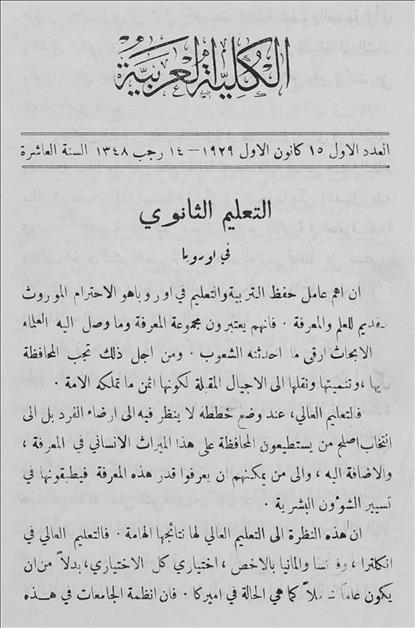 الكلية العربية
العدد الاول ١٥ كانون الاول ١٩٢٩ — ١٤ رجب ١٣٤٨ السنة العاشرة
التعليم الثانوي
في اوروبا
ان اهم عامل حفظ التربية والتعليم في اوروبا هو الاحترام الموروث
قديم للعلم والمعرفة . فانهم يعتبرون مجموعة المعرفة وما وصل اليه العلماء
الابحاث ارقى ما احدثته الشعوب . ومن اجل ذلك تجب المحافظة
يها ، وتنميتها ونقلها الى الاجيال المقبلة لكونها اثمن ما تملكه الامة .
فالتعليم العالي ، عند وضع خططه لا ينظر فيه الى ارضاء الفرد بل الى
انتخاب اصلح من يستطيعون المحافظة على هذا الميراث الانساني في المعرفة ،
والاضافة اليه ، والى من يمكنهم ان يعرفوا قدر هذه المعرفة فيطبقونها في
تسيير الشؤون البشرية .
ان هذه النظرة الى التعليم العالي لها نتائجها الهامة . فالتعليم العالي في
انكلترا ، وفرنسا والمانيا بالاخص ، اختياري كل الاختياري ، بدلاً من ان
يكون عاماً شاملاً كما هي الحالة في اميركا . فان انظمة الجامعات في هذه